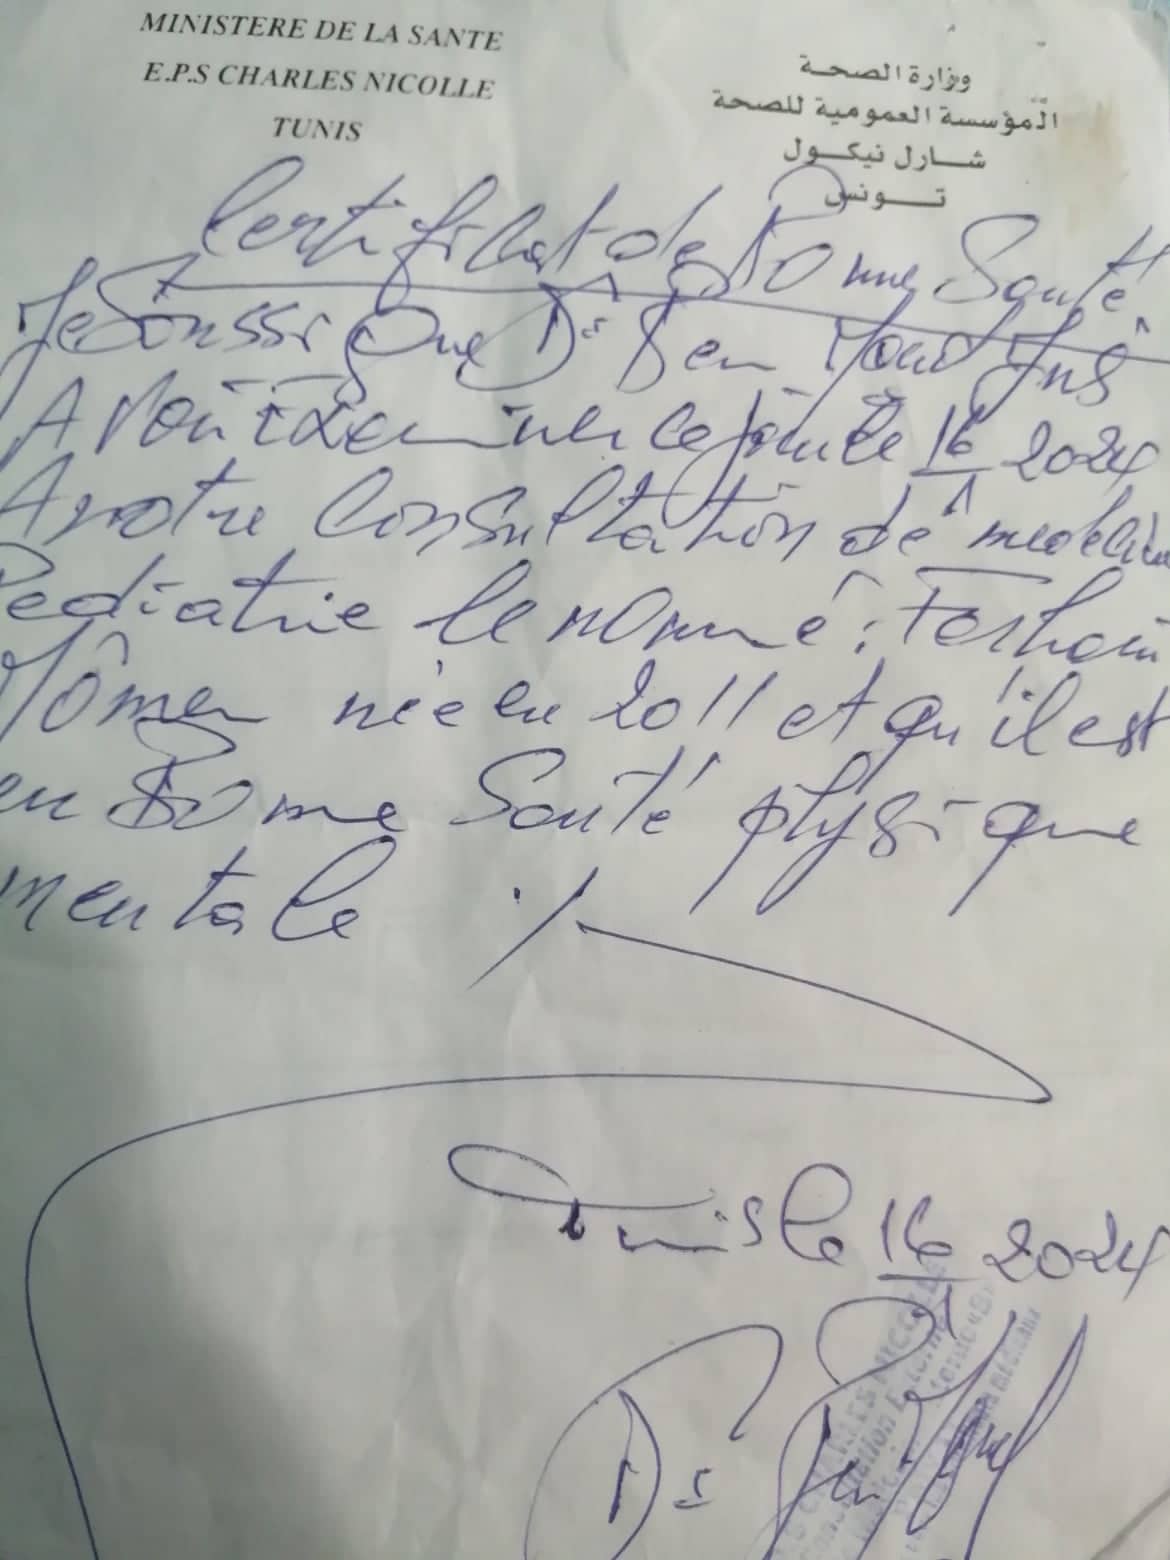 MINISTERE DE LA SANTE
E.P.S CHARLES NICOLLE
TUNIS
وزارة الصحة
المؤسسة العمومية للصحة
شارل نيكول
تونس
Certificat de Bonne Santé
Je Soussigné Dr Ben
Avoir Examiner ce jour le 16/1 2024
A notre Consultation de medecine
Pediatrie le nommé : Ferhani
Mômen née en 2011 et qu'il est
en Bonne Santé physique
mentale ./.
Tunis le 16/1 2024
Dr Ben
CHARLES NICOLLE
Consultation Externe